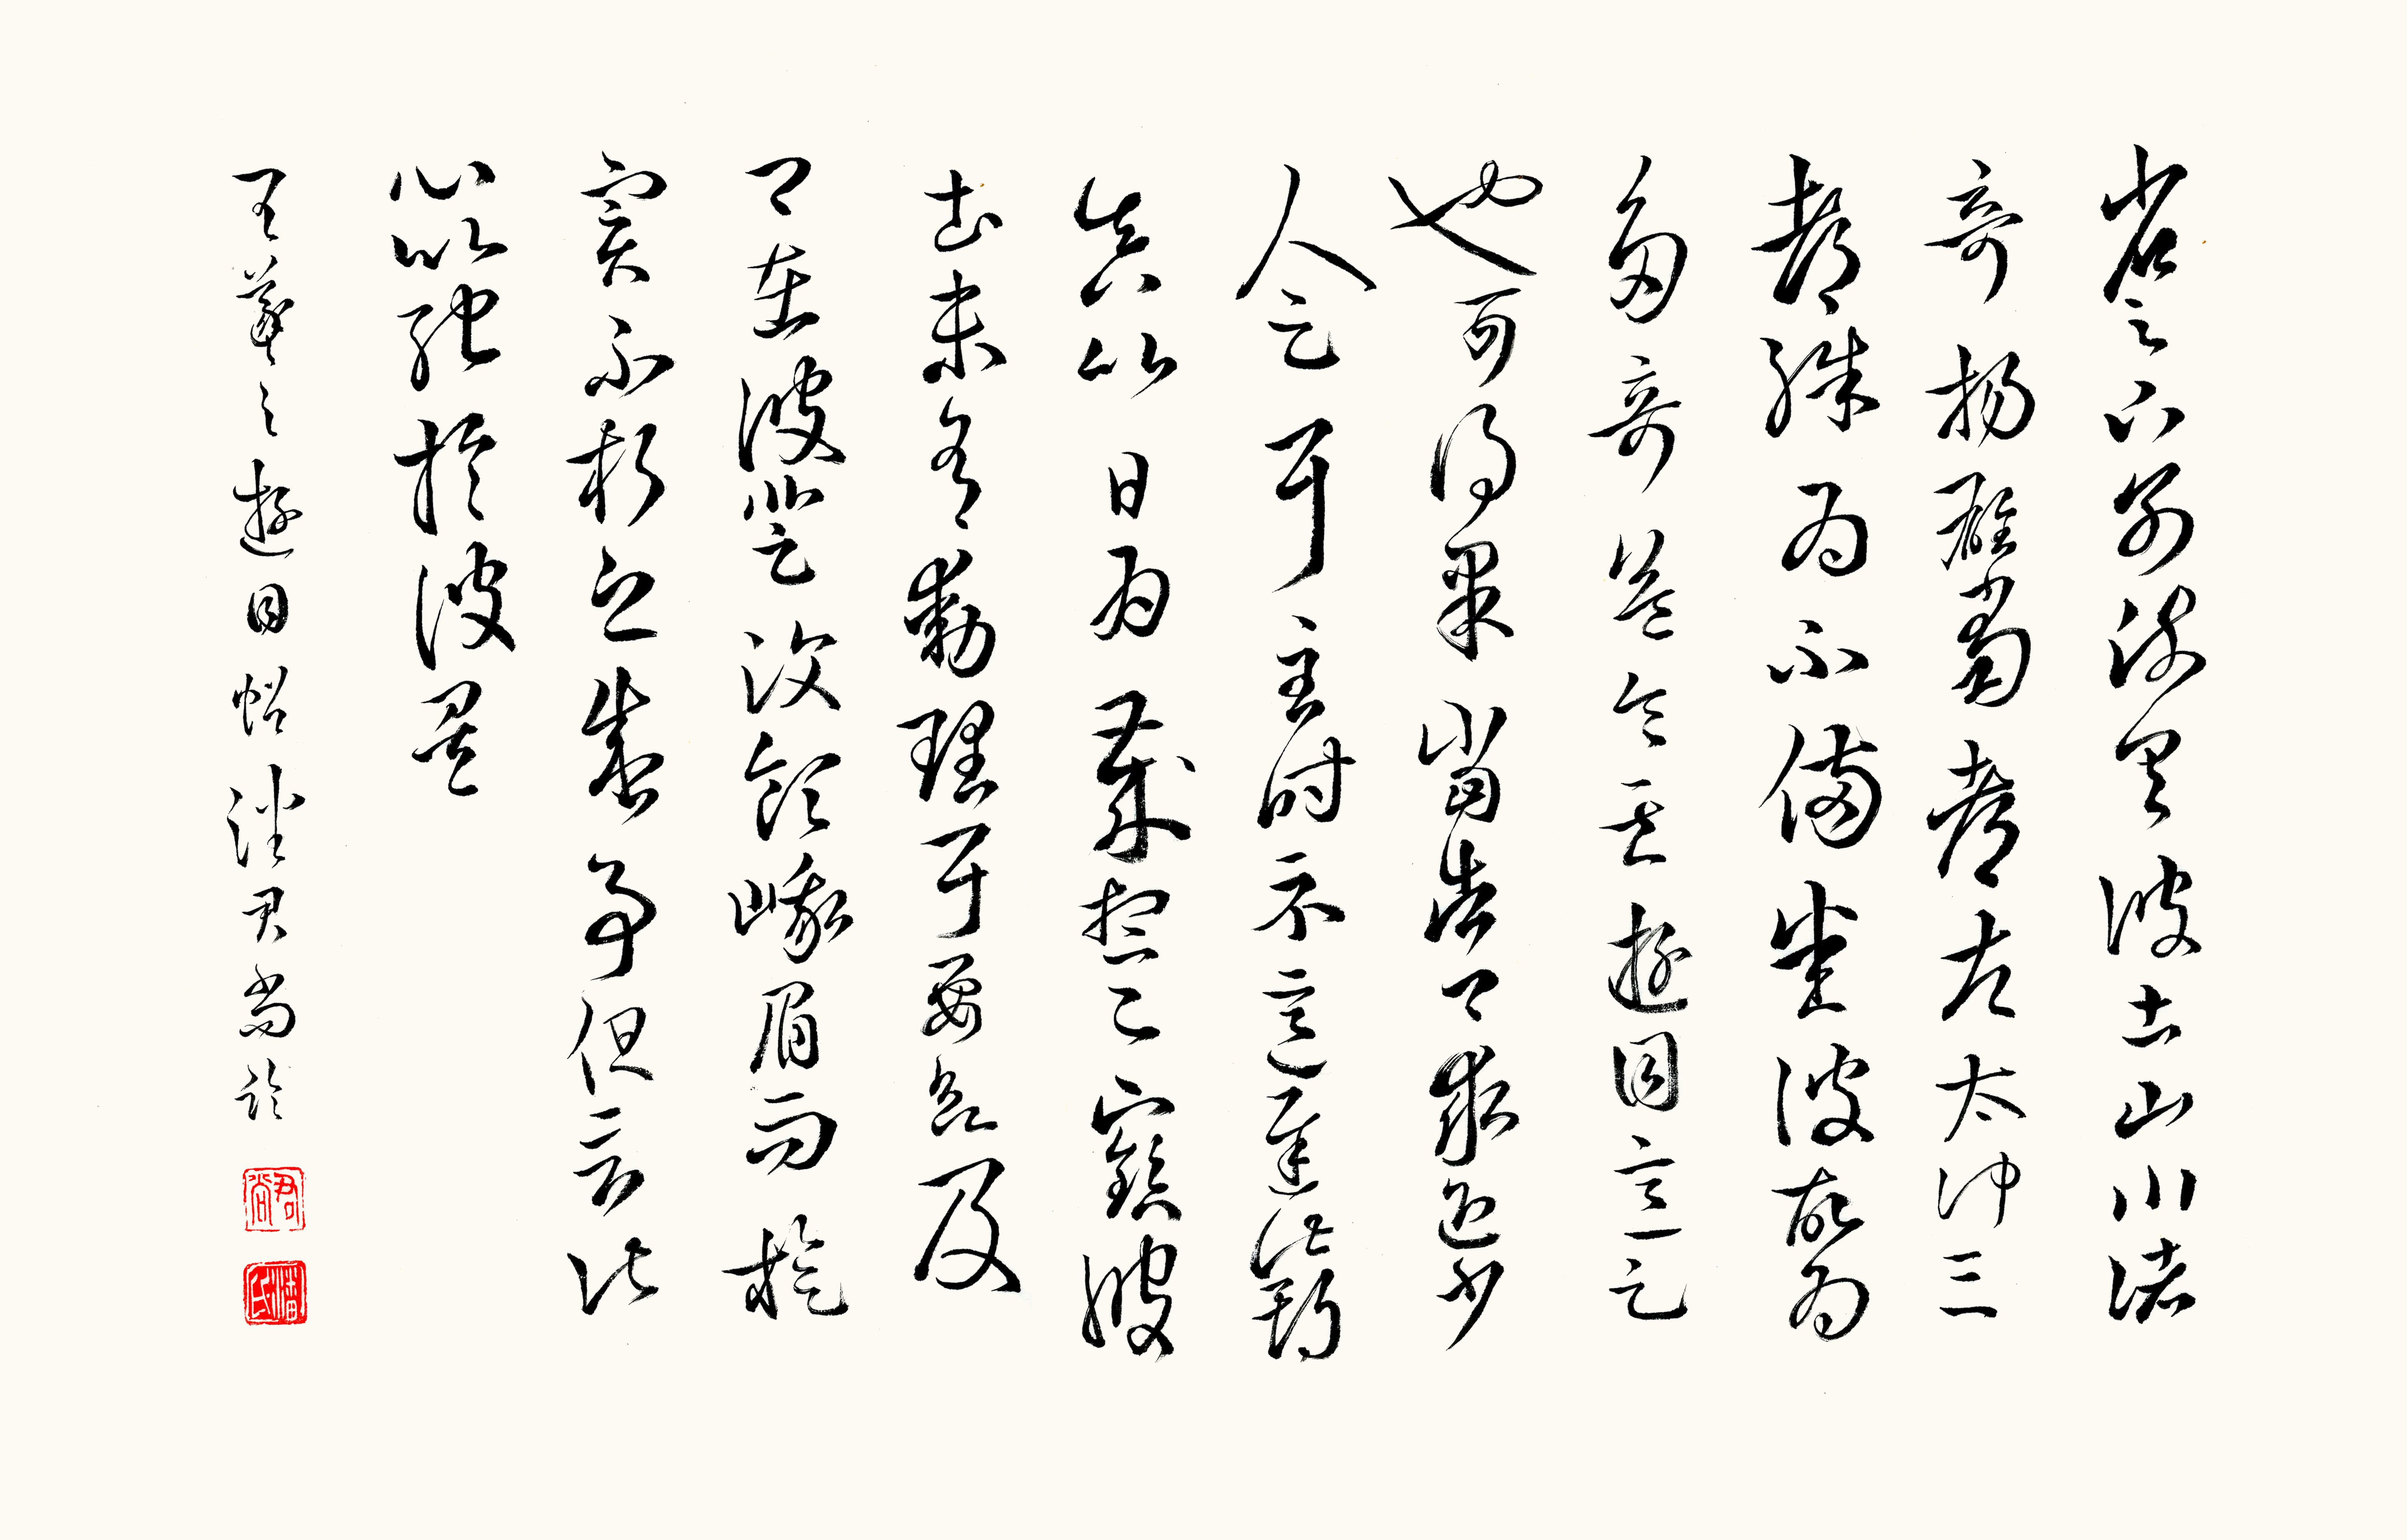 省足下別疏具彼土山川諸
奇揚雄蜀都左太沖三
都殊為不備悉彼故為
多奇益令其遊目意足
也可得果當告卿求迎少
人足耳至時示意遲此期
真以日為歲想足下鎮彼
土未有動理耳要欲及
卿在彼登汶領峨眉而旋
實不朽之盛事但言此
心以馳於彼矣
王羲之遊目帖 潘君尚臨
君尚
潘氏